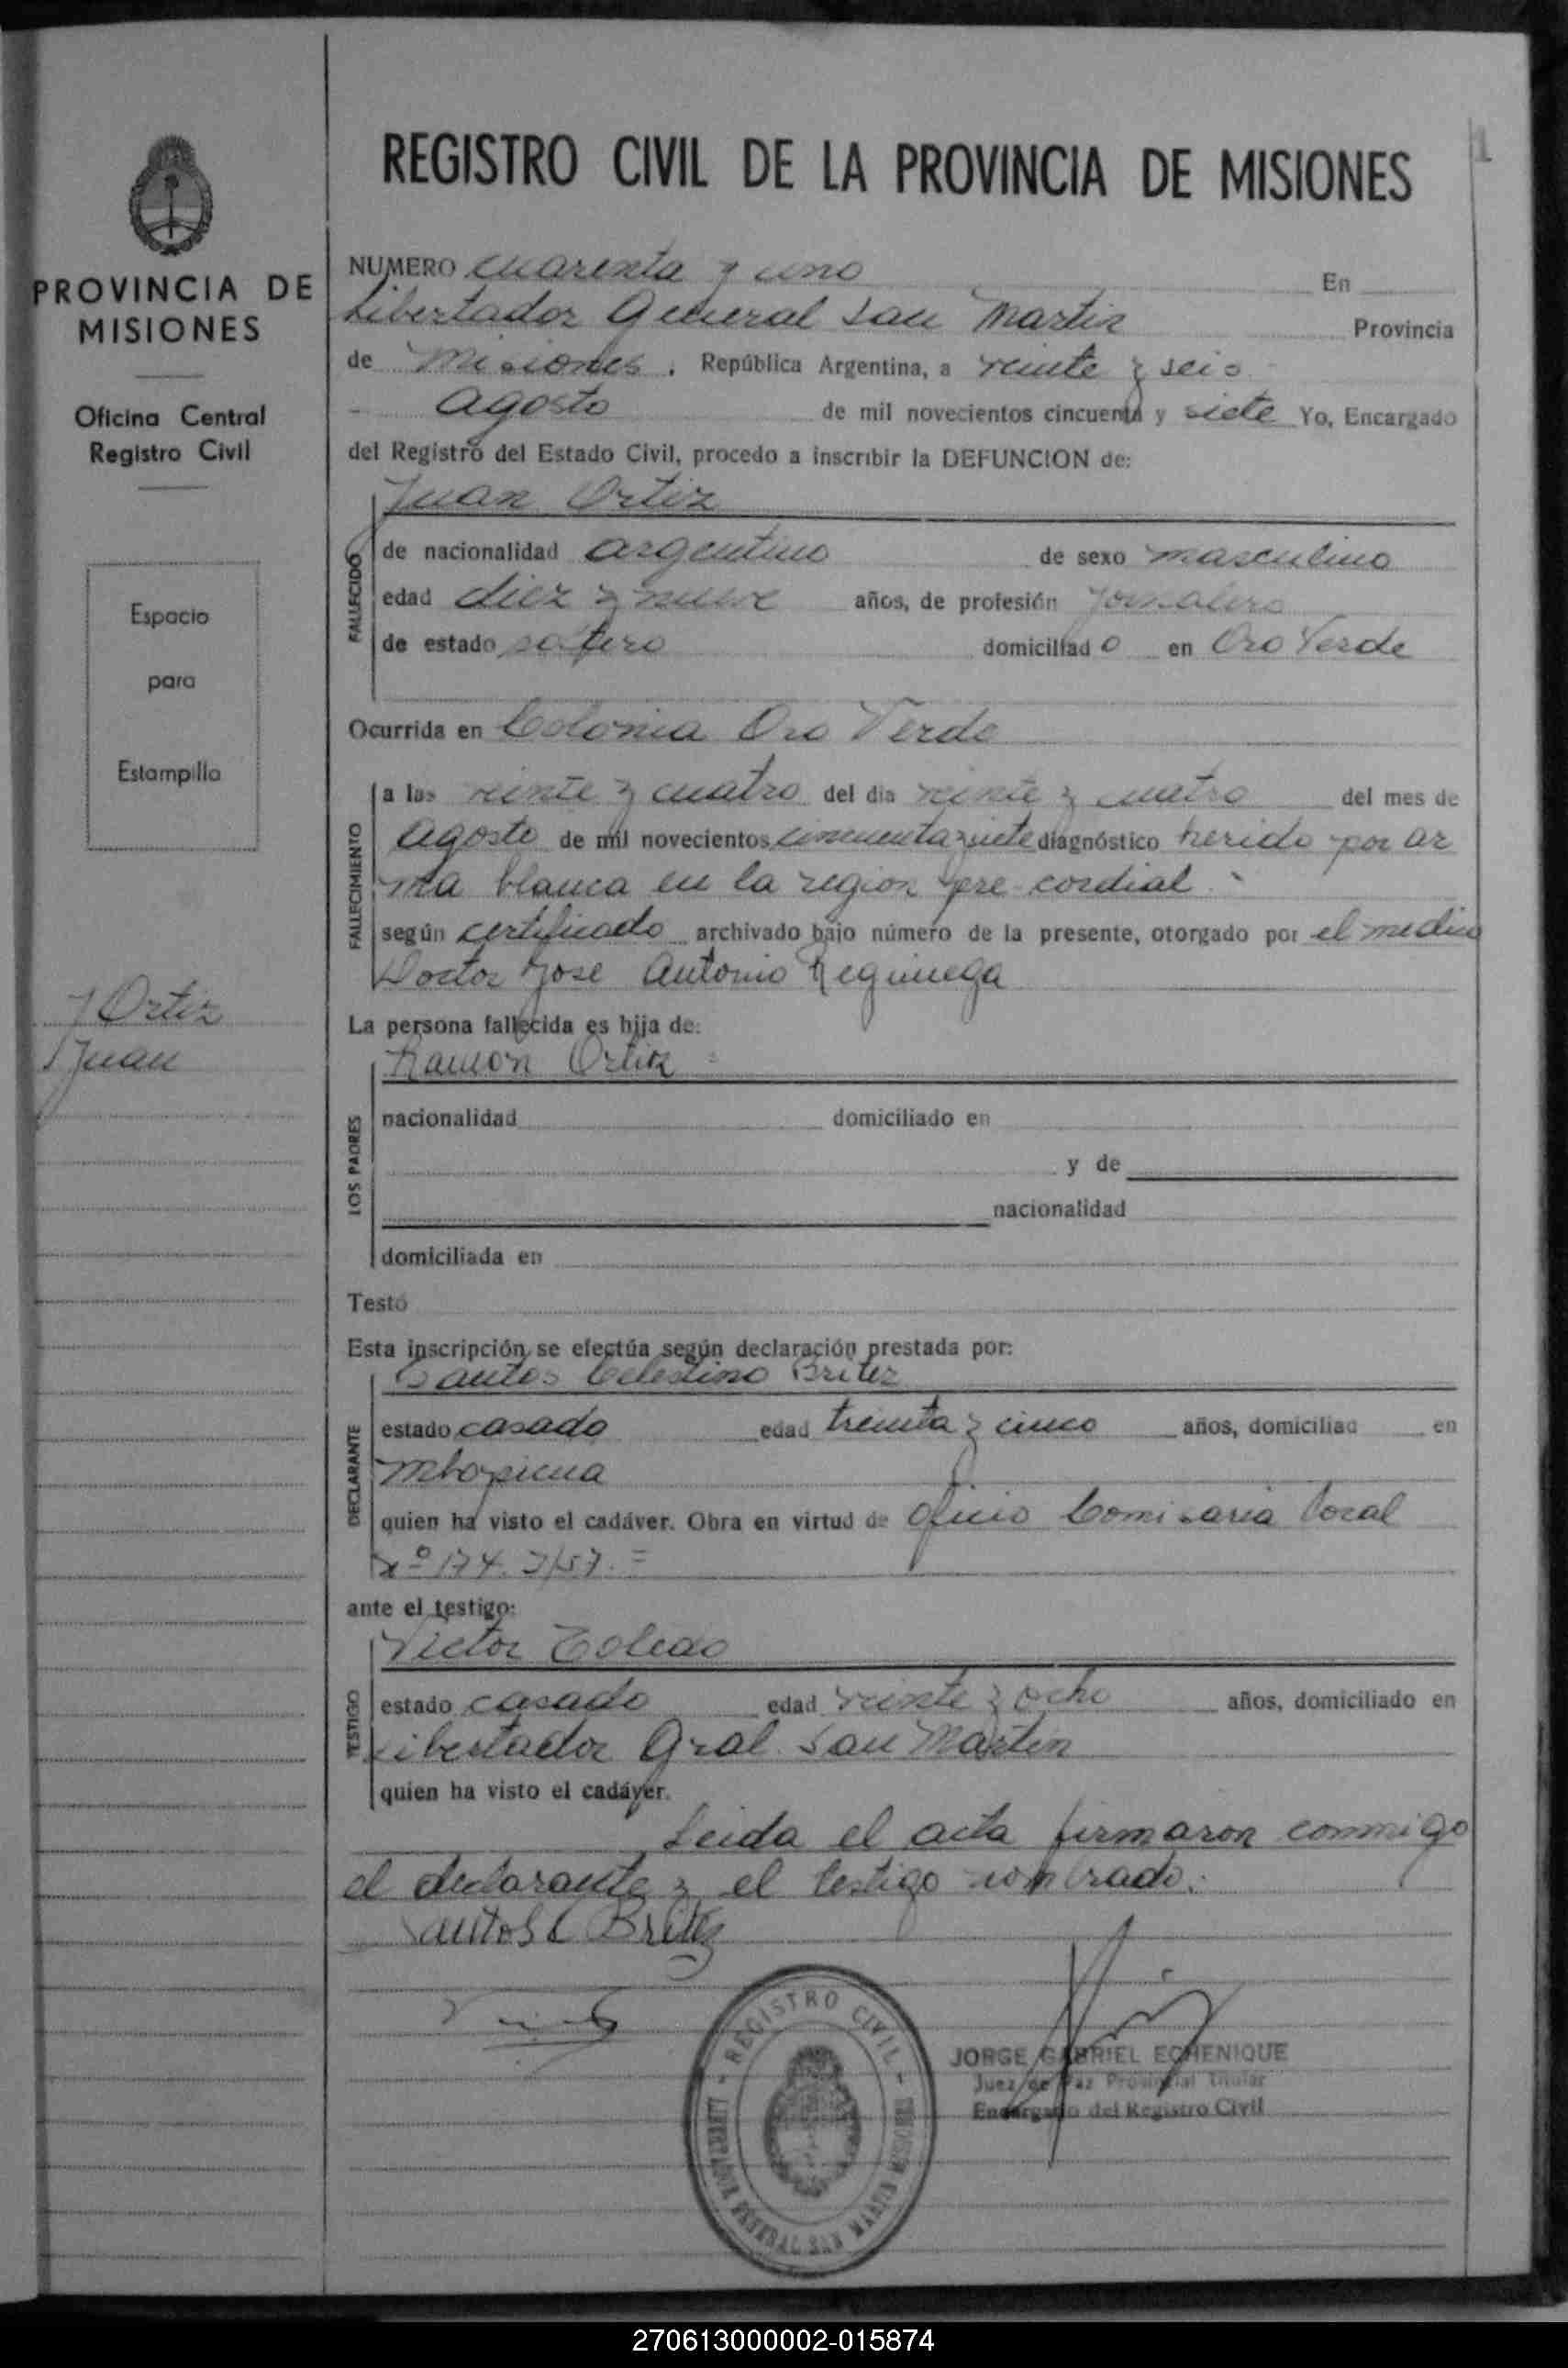 REGISTRO CIVIL DE LA PROVINCIA DE MISIONES
PROVINCIA DE
MISIONES
Oficina Central
Registro Civil
Espacio
para
Estampilla
Ortiz
Juan
NUMERO cuarenta y uno En
Libertador General San Martin Provincia
de Misiones, República Argentina, a veinte y seis
Agosto de mil novecientos cincuenta y siete Yo, Encargado
del Registro del Estado Civil, procedo a inscribir la DEFUNCION de:
Juan Ortiz
FALLECIDO
de nacionalidad argentino de sexo masculino
edad diez y nueve años, de profesión Jornalero
de estado soltero domiciliado en Oro Verde
Ocurrida en Colonia Oro Verde
FALLECIMIENTO
a las veinte y cuatro del dia veinte y cuatro del mes de
Agosto de mil novecientos cincuenta y siete diagnóstico herido por ar
ma blanca en la region pre-cordial
según certificado archivado bajo número de la presente, otorgado por el medico
Doctor Jose Antonio
La persona fallecida es hija de:
LOS PADRES
Ramon Ortiz
nacionalidad domiciliado en
y de
nacionalidad
domiciliada en
Testó
Esta inscripción se efectúa según declaración prestada por:
DECLARANTE
Santos Celestino Britez
estado casado edad treinta y cinco años, domiciliad en
Mbopicua
quien ha visto el cadáver. Obra en virtud de Oficio Comisaria local
Nº 174.
ante el testigo:
TESTIGO
Victor Toledo
estado casado edad veinte y ocho años, domiciliado en
Libertador Gral San Martin
quien ha visto el cadáver.
Leida el acta firmaron conmigo
el declarante y el testigo nombrado.
Santos C Britez
REGISTRO CIVIL
LIBERTADOR GENERAL SAN MARTIN MISIONES
JORGE GABRIEL ECHENIQUE
Juez de Paz Provincial Titular
Encargado del Registro Civil
270613000002-015874